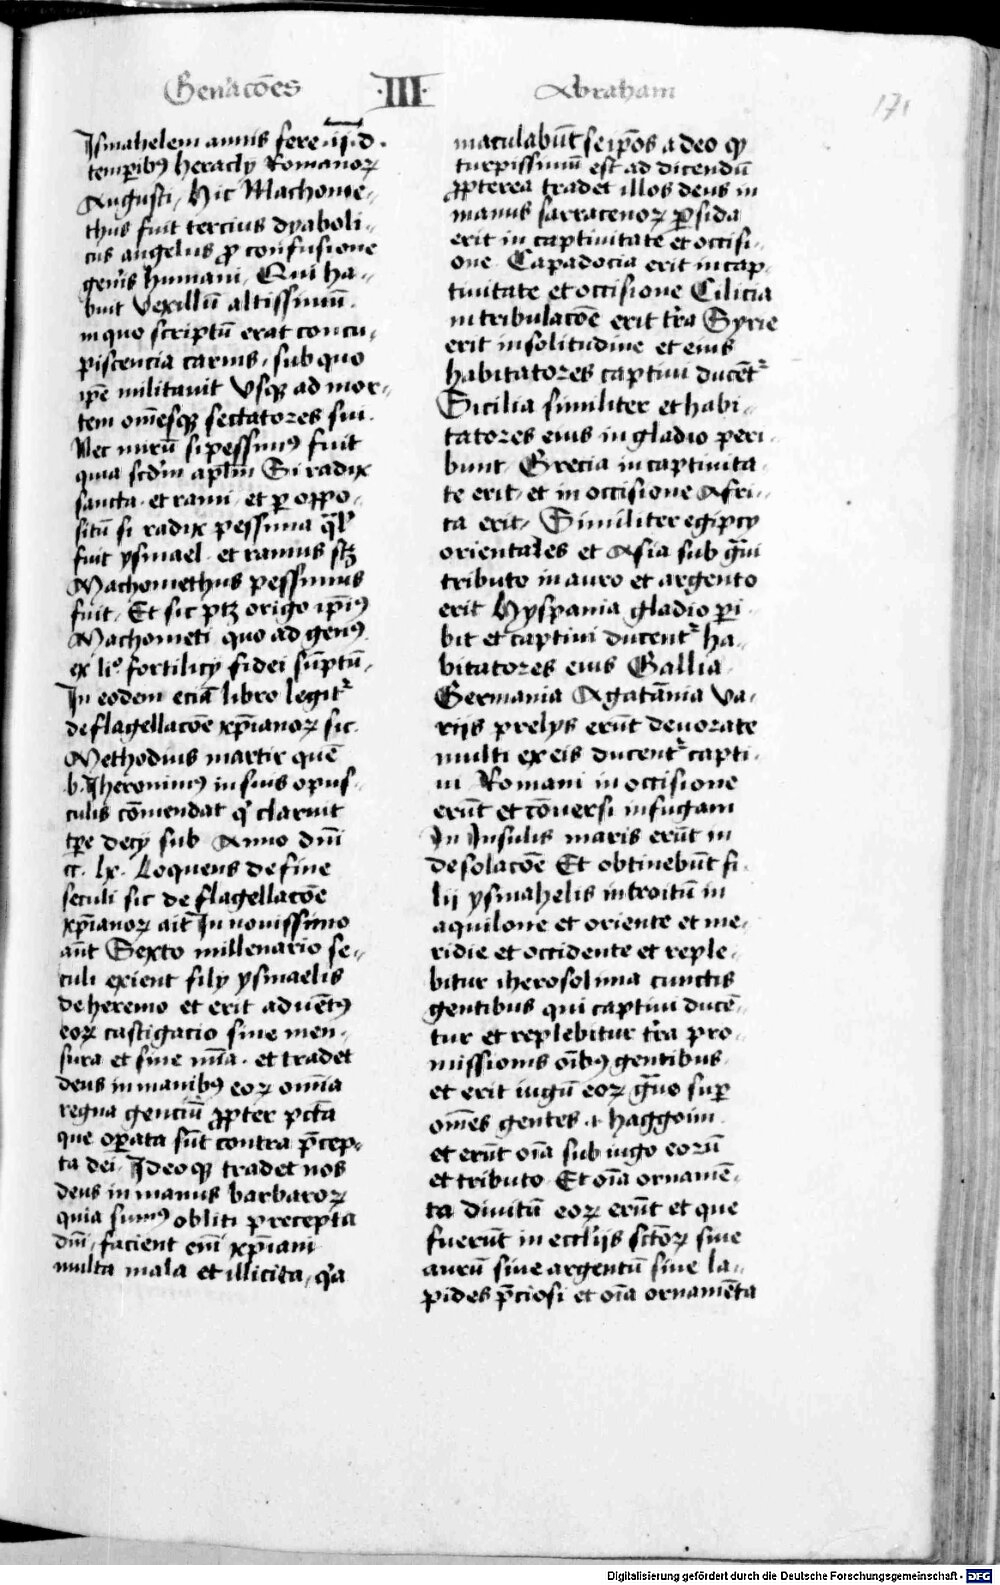 Gen̄acōes ·III· Abraham
171
Ismahelem annis fere ·ii·d·
temꝑibꝰ heracly Romanoꝝ
Augusti, Hic Machome-
thus fuit tercius dyaboli-
cus angelus ꝓ confusione
gen̄is humani, Qui ha-
buit vexillū altissimū.
in quo scriptū erat concu-
piscencia carnis, sub quo
ip̄e militauit vsqꝫ ad mor-
tem om̄esqꝫ sectatores sui.
Nec mirū si pessimꝰ fuit
quia scd̄m apl̄m Si radix
sancta · et rami, et ꝑ oppo-
situ̅ si radix pessima qͣlꝭ
fuit ysmael · et ramus sꝫ
Machomethus pessimus
fuit, Et sic ptꝫ origo ip̄iꝰ
Machometi quo ad genꝰ
ex liº fortilicy fidei sūptū,
In eodem eciā libro legitᷣ
de flagellacōe xp̄ianoꝝ sic.
Methodius martir quē
b. Iheronimꝰ in suis opus-
culis cōmendat qͥ claruit
tꝑe decy sub Anno dn̄i
cc. lx. Loquens de fine
seculi sic de flagellacōe
xp̄ianoꝝ ait In nouissimo
aūt Sexto millenario se-
culi exient fily ysmaelis
de heremo et erit aduētꝰ
eoꝝ castigacio sine men-
sura et sine mīa · et tradet
deus in manibꝰ eoꝝ omīa
regna genciū ꝓpter pctā
que oꝑata sūt contra p̄cep-
ta dei, Ideoqꝫ tradet nos
deus in manus barbaroꝝ
quia sumꝰ obliti precepta
dn̄i, facient em̄ xp̄iani
multa mala et illicita, qͥa
maculabūt seip̄os adeo qꝫ
turpissimū est ad dicendū
ꝓpterea tradet illos deus in
manus sarracenoꝝ ꝑsida
erit in captiuitate et occisi-
one Capadocia erit in cap-
tiuitate et occisione Cilicia
in tribulacōe erit tr̄a Syrie
erit in solitudine et eius
habitatores captiui ducētᷣ
Sicilia similiter et habi-
tatores eius in gladio peri-
bunt, Grecia in captiuita-
te erit, et in occisione Afri-
ca erit, Similiter egipcy
orientales et Asia sub gͣui
tributo in auro et argento
erit Hyspania gladio ꝑi-
bit et captiui ducentᷣ ha-
bitatores eius Gallia
Germania Agatānia va-
rijs prelys erūt deuorate
multi ex eis ducentᷣ capti-
ui Romani in occisione
erūt et cōuersi in fugam
In Insulis maris erūt in
desolacōe Et obtinebūt fi-
lij ysmahelis introitū in
aquilone et oriente et me-
ridie et occidente et reple-
bitur iherosolima cunctis
gentibus qui captiui ducē-
tur et replebitur tr̄a pro-
missionis oībꝰ gentibus
et erit iugū eoꝝ gͣue suꝑ
om̄es gentes · i · haggoim
et erūt oīa sub iugo eorū
et tributo Et oīa ornamē-
ta diuitū eoꝝ erūt et que
fuerūt in eccl̄ijs sctōꝝ siue
aurū siue argentū siue la-
pides p̄ciosi et oīa ornamēta
Digitalisierung gefördert durch die Deutsche Forschungsgemeinschaft - DFG